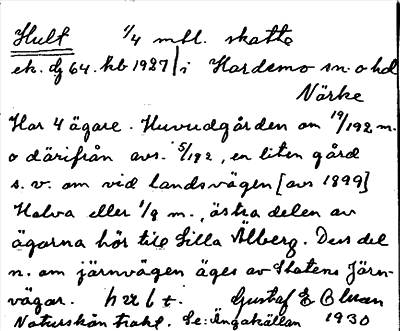 Hult 1/4 mtl. skatte
ek. dg 64. kb 1927 / i Hardemo sn. o hd
Närke
Har 4 ägare. Huvudgården om 19/192 m.
o därifrån avs. 5/192, en liten gård
s. v. om vid landsvägen [avs 1899]
Halva eller 1/8 m., östra delen av
ägorna hör till Lilla Älberg. Den del
n. om järnvägen äges av Statens Järn-
vägar. h 22 b t. Gustaf E
Naturskön trakt. Se: Ängakällan 1930